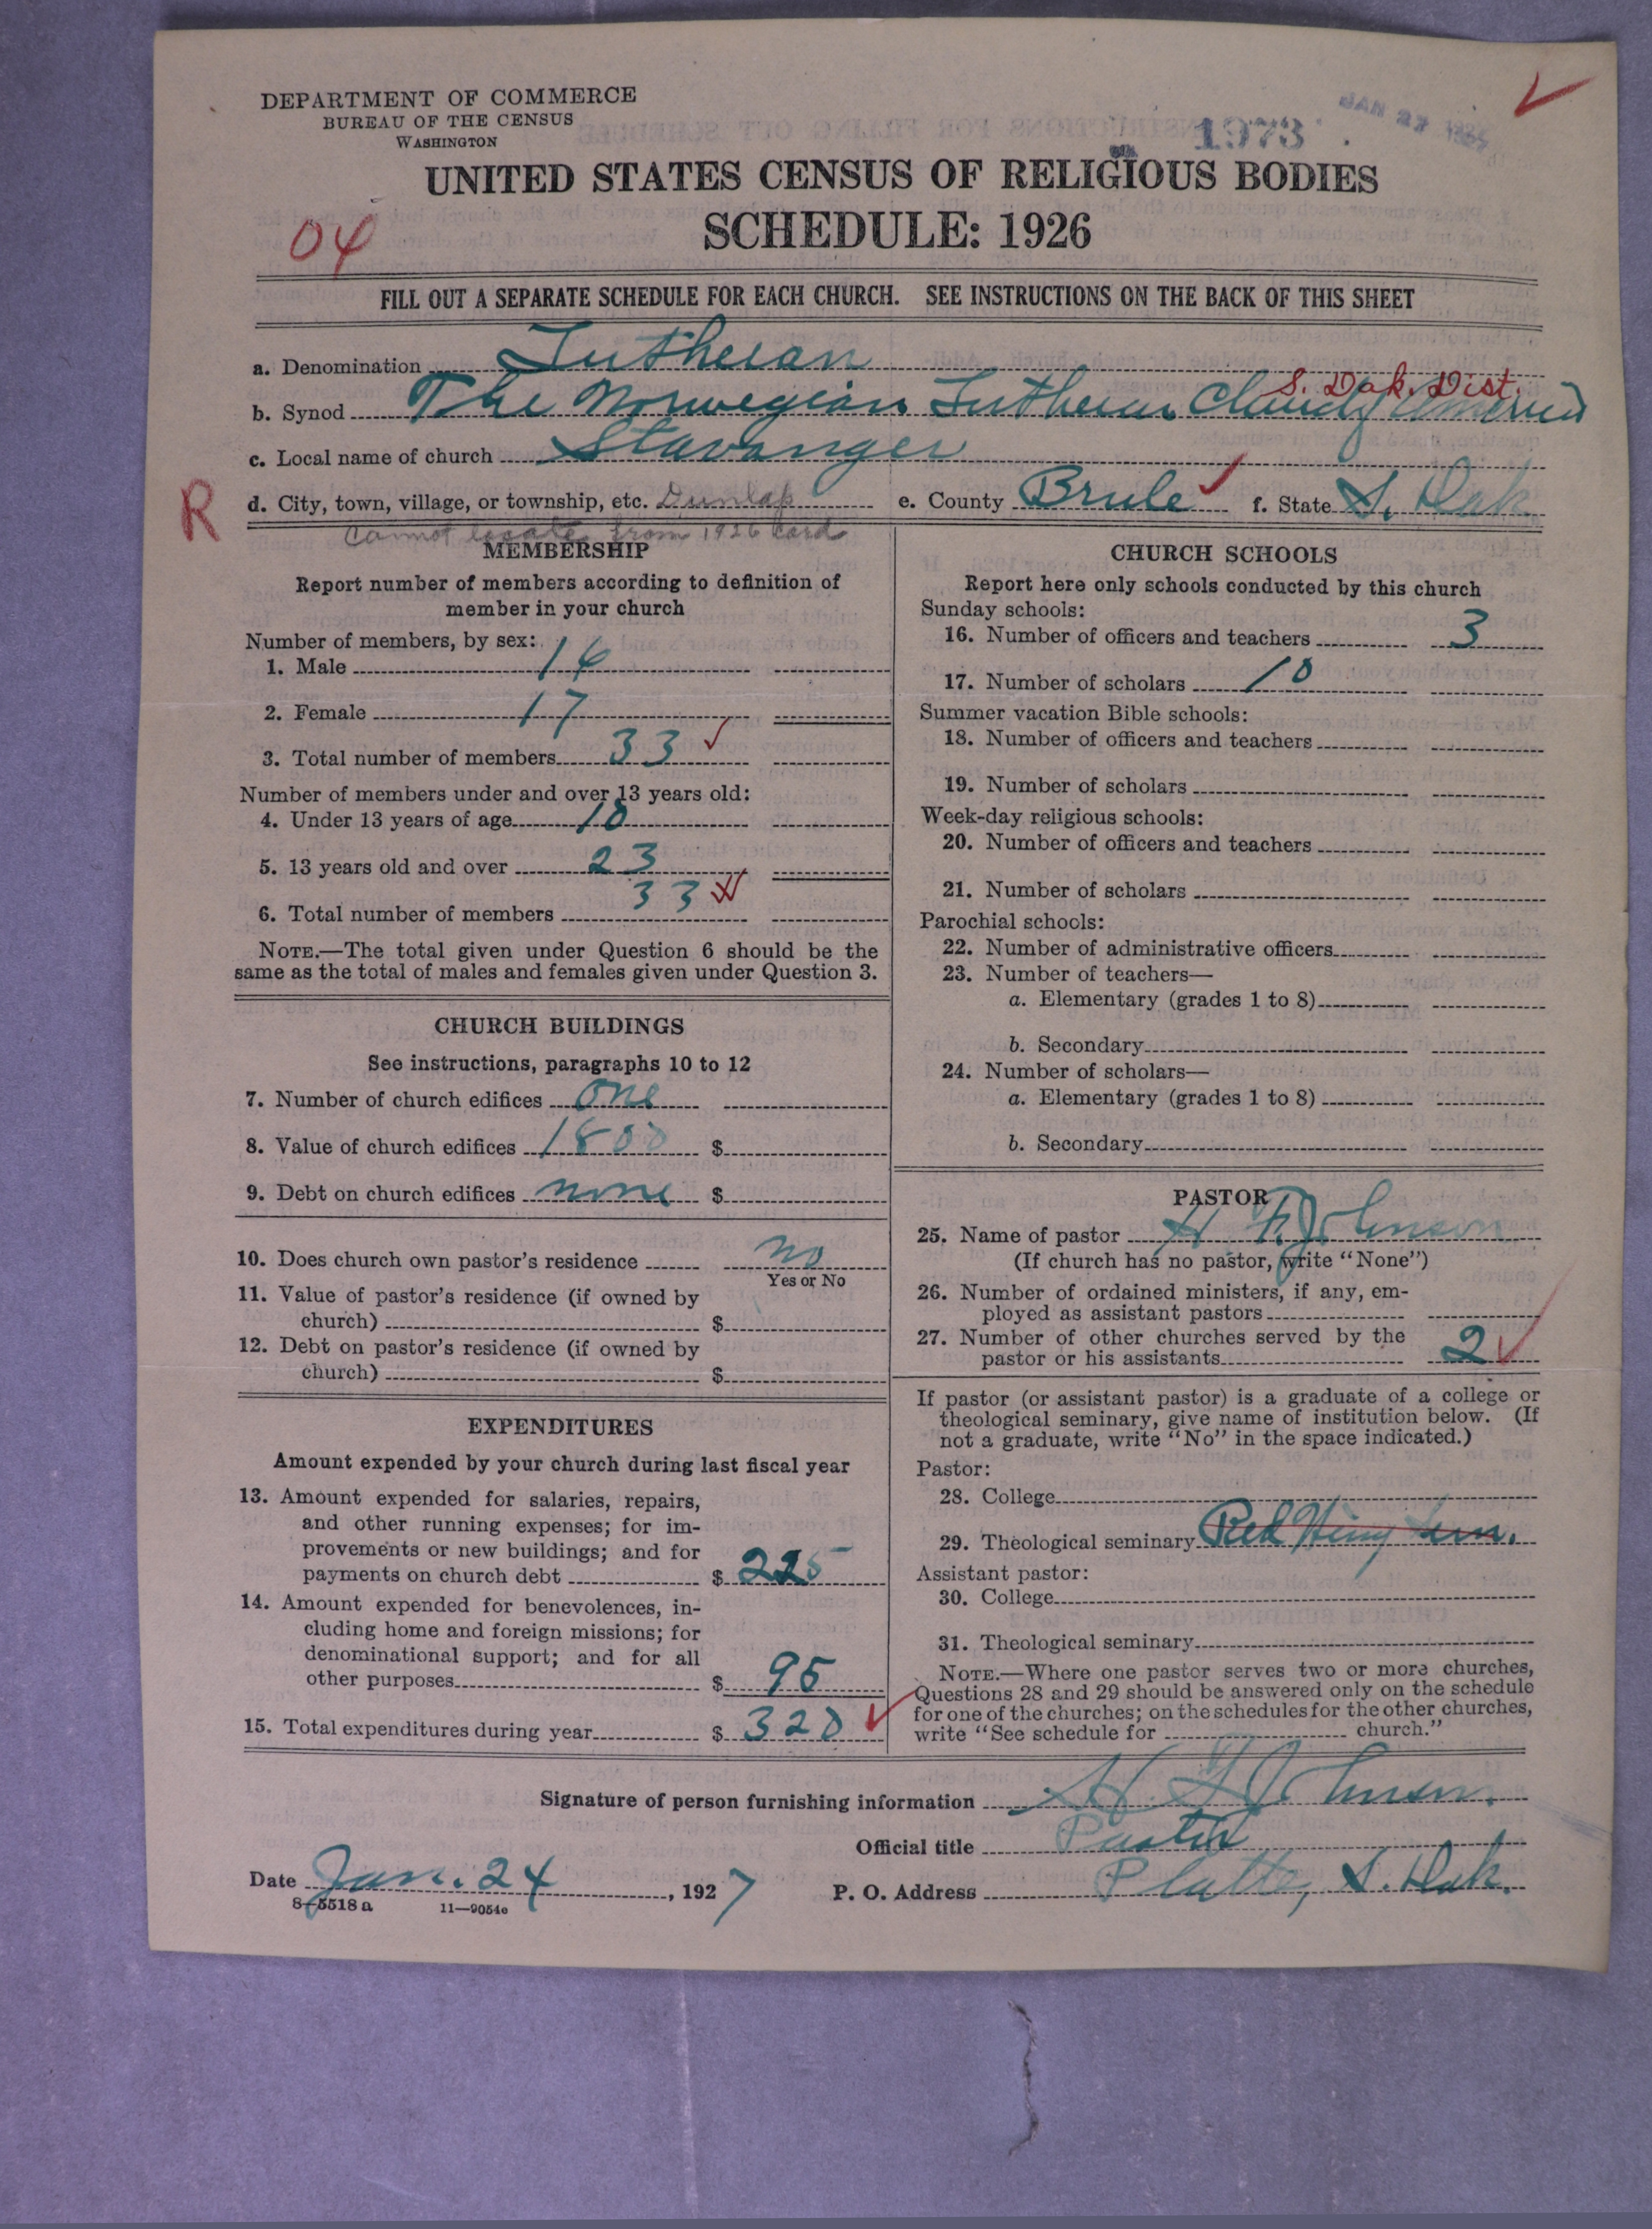 DEPARTMENT OF COMMERCE
BUREAU OF THE CENSUS
WASHINGTON
1973
JAN 27
UNITED STATES CENSUS OF RELIGIOUS BODIES
04
SCHEDULE: 1926
FILL OUT A SEPARATE SCHEDULE FOR EACH CHURCH. SEE INSTRUCTIONS ON THE BACK OF THIS SHEET
a. Denomination Lutheran
S. Dak. Dist.
b. Synod The Norwegian Lutheran Church America
c. Local name of church Stavanger
R
d. City, town, village, or township, etc. Dunlap e. County Brule f. State S. Dak.
Cannot locate from 1926 card
MEMBERSHIP
Report number of members according to definition of
member in your church
Number of members, by sex:
1. Male 16
2. Female 17
3. Total number of members 33
Number of members under and over 13 years old:
4. Under 13 years of age 10
5. 13 years old and over 23
6. Total number of members 33
NOTE.—The total given under Question 6 should be the
same as the total of males and females given under Question 3.
CHURCH BUILDINGS
See instructions, paragraphs 10 to 12
7. Number of church edifices one
8. Value of church edifices 1800 $
9. Debt on church edifices none $
10. Does church own pastor's residence no
Yes or No
11. Value of pastor's residence (if owned by
church) $
12. Debt on pastor's residence (if owned by
church) $
EXPENDITURES
Amount expended by your church during last fiscal year
13. Amount expended for salaries, repairs,
and other running expenses; for im-
provements or new buildings; and for
payments on church debt $ 225
14. Amount expended for benevolences, in-
cluding home and foreign missions; for
denominational support; and for all
other purposes $ 95
15. Total expenditures during year $ 320
CHURCH SCHOOLS
Report here only schools conducted by this church
Sunday schools:
16. Number of officers and teachers 3
17. Number of scholars 10
Summer vacation Bible schools:
18. Number of officers and teachers
19. Number of scholars
Week-day religious schools:
20. Number of officers and teachers
21. Number of scholars
Parochial schools:
22. Number of administrative officers
23. Number of teachers—
a. Elementary (grades 1 to 8)
b. Secondary
24. Number of scholars—
a. Elementary (grades 1 to 8)
b. Secondary
PASTOR
25. Name of pastor H F Johnson
(If church has no pastor, write "None")
26. Number of ordained ministers, if any, em-
ployed as assistant pastors
27. Number of other churches served by the
pastor or his assistants 2
If pastor (or assistant pastor) is a graduate of a college or
theological seminary, give name of institution below. (If
not a graduate, write "No" in the space indicated.)
Pastor:
28. College
29. Theological seminary Red Wing Sem.
Assistant pastor:
30. College
31. Theological seminary
NOTE.—Where one pastor serves two or more churches,
Questions 28 and 29 should be answered only on the schedule
for one of the churches; on the schedules for the other churches,
write "See schedule for church."
Signature of person furnishing information H. F. Johnson.
Official title Pastor
Date Jan. 24, 1927 P. O. Address Platte, S. Dak.
8-5518 a 11—9054c